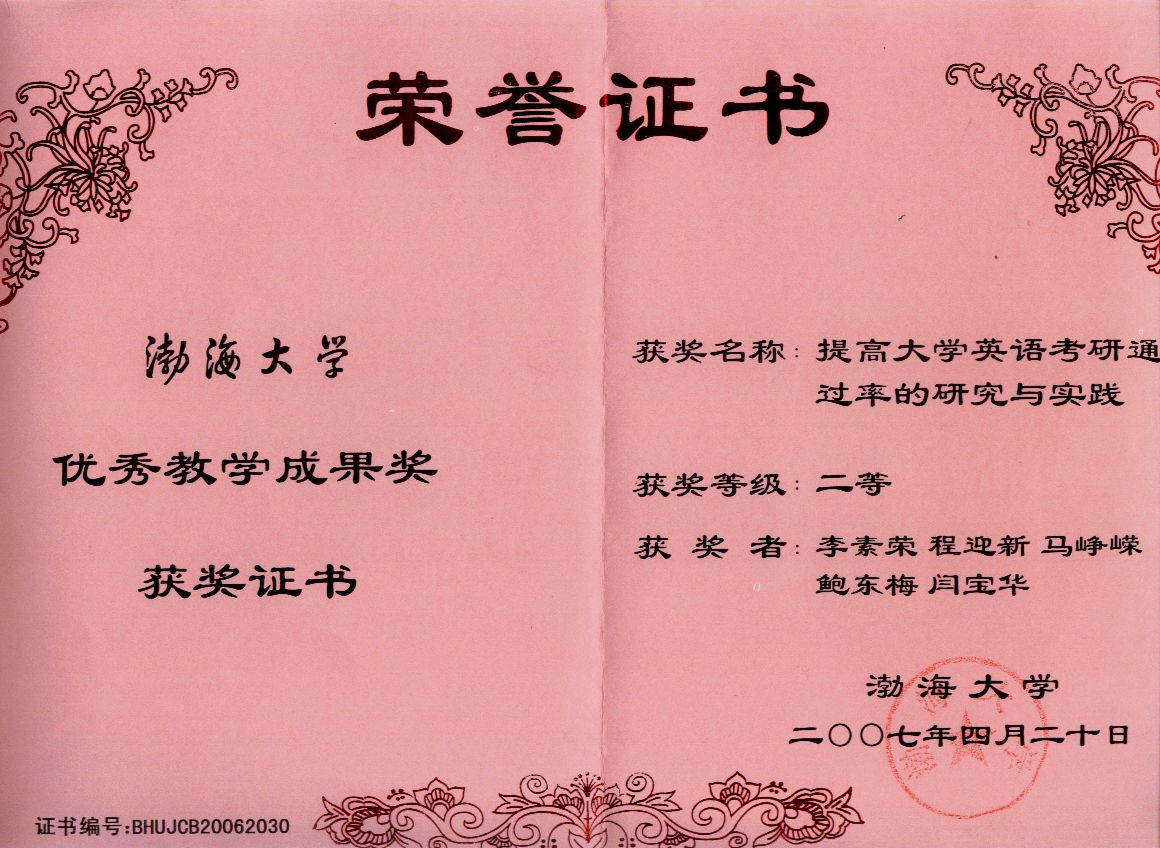 荣誉证书
渤海大学
优秀教学成果奖
获奖证书
证书编号:BHUJCB20062030
获奖名称：提高大学英语考研通
过率的研究与实践
获奖等级：二等
获奖者：李素荣 程迎新 马峥嵘
鲍东梅 闫宝华
渤海大学
二〇〇七年四月二十日